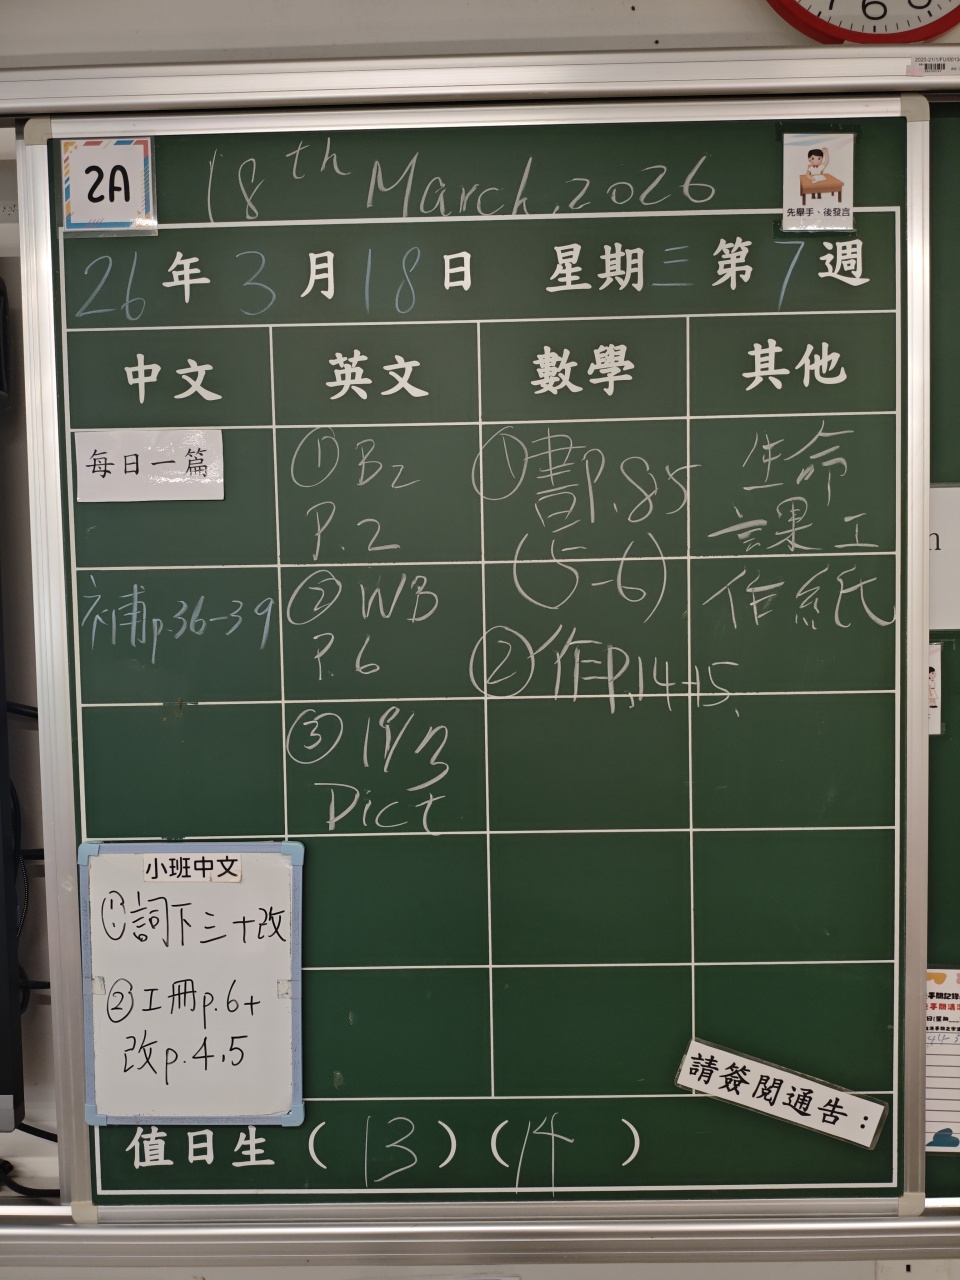 2A
18th March, 2026
先舉手、後發言
26年3月18日 星期三第7週
中文 英文 數學 其他
每日一篇
補p.36-39
① B2
P.2
② WB
P.6
③ 19/3
Dict
①書P.85
(5-6)
②作P.14-15
生命
課工
作紙
小班中文
①詞下三+改
②工冊p.6+
改p.4,5
請簽閱通告：
值日生 (13) (14)
6